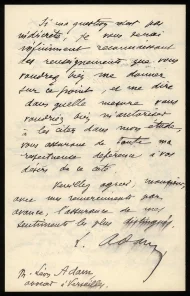 Si ma question n'est pas
indiscrète, je vous serai
infiniment reconnaissant
des renseignements que vous
voudrez bien me donner
sur ce point, et me dire
dans quelle mesure vous
voudriez bien m'autoriser
à les citer dans mon étude,
vous assurant de toute ma
respectueuse déférence à vos
désirs de ce côté.
Veuillez agréer, monsieur,
avec mes remerciements par
avance, l'assurance de mes
sentiments les plus distingués
L. Adam
M. Léon Adam
avocat à Versailles.